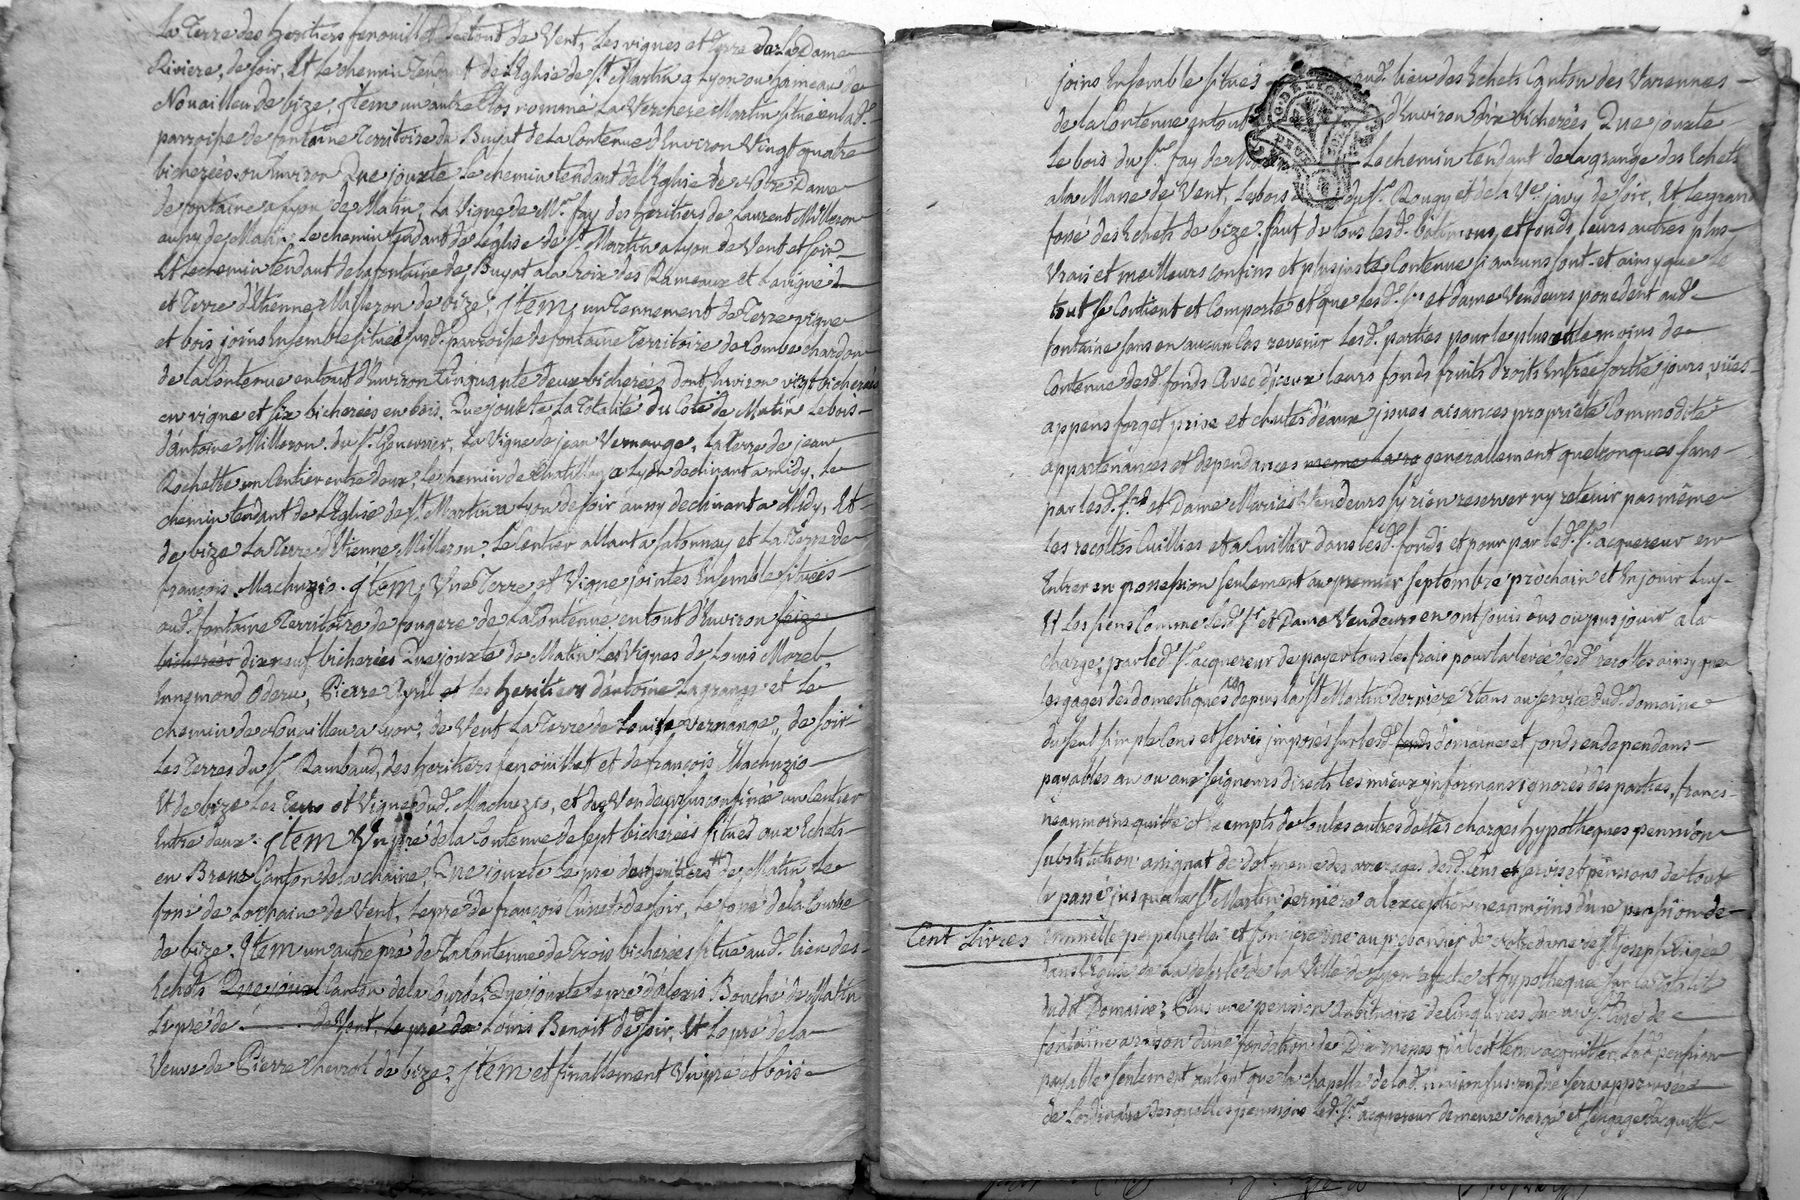 La Terre des heritiers fenouillet de Vent, Les vignes et Terre de La Dame
Riviere, de soir, Et Le chemin Tendant de L'Eglise de St Martin a Lyon ou hameau de
Nouailleu de bize; Item un autre Clos nommé La Verchere Martin situé en lad.
parroisse de fontaine Territoire du Buyat de La Contenue d'Environ Vingt quatre
bicherées ou Environ Que jouxte Le chemin tendant de l'Eglise de Notre Dame
de fontaine a Lyon de Matin, La Vigne de Mr. fay des heritiers de Laurent Milleron
aussy de Matin; Le chemin tendant de L'église de St. Martin a Lyon de Vent et soir
Et Le chemin tendant de la fontaine de Buyat a la Croix des Rameaux et La vigne
et Terre d'Etienne Milleron de bize; Item, un Tennement de Terre vigne
et bois joins Ensemble situés susd. parroisse de fontaine Territoire de Combe chardon
de La Contenue en tout d'Environ Cinquante deux bicherées, dont Environ vingt bicherées
en vigne et six bicherées en bois. Que jouxte La Totalité du Coté de Matin Le bois
d'antoine Milleron, du Sr. La Vigne de jean Vernange, La Terre de jean
Rochette un Centier entre deux; Le chemin de Chatillon a Lyon declinant a Midy, Le
chemin tendant de L'Eglise de St. Martin a Lyon de soir aussy declinant a Midy, Et
de bize La Terre d'Etienne Milleron, Le Centier allant a Satonnay et La Terre de
françois Machuzio. Item, Une Terre et Vigne jointes Ensemble situées
aud. fontaine Territoire de fougere de La Contenue en tout d'Environ seize
bicherées dixneuf bicherées Que jouxte de Matin Les Vignes de Louis Morel,
Ennemond Oderu, Pierre Ayril et les heritiers d'antoine Lagrange et Le
chemin de Nouailleu a Lyon, de Vent La Terre de Louise Vernange, de soir
Les Terres du Sr. Rambaud, des heritiers fenouillet et de françois Machuzio
Et de bize Les Terre et Vigne dud. Machuzio, et dud. Vendeur sus confinée un Centier
Entre deux. Item Un pré de la Contenue de Sept bicherées situés aux Echets
en Bresse Canton de la chaine; Que jouxte Le pré des heritiers de Matin Le
fossé de Lorraine de Vent, Le pré de françois Cunet de soir, Le fossé de la Courbe
de bize. Item un autre pré de La Contenue de Trois bicherées situé aud. lieu des
Echets Que jouxte Canton de la Courbe; Que jouxte Le pré d'alexis Bouché de Matin
Le pré de de Vent, Le pré de Louis Benoit de soir, Et Le pré de la
Veuve de Pierre Chevrol de bize; Item et finallement Un pré et bois
joins Ensemble situés aud. lieu des Echets Canton des Varennes
de la Contenue en tout d'Environ dix bicherées, Que jouxte
Le bois du Sr. fay de Le chemin tendant de la grange des Echets
a la Masse de Vent, Le bois du Sr. Rougy et de la Ve. javy de soir, Et Le grand
fossé des Echets de bize, sauf de tous lesd. batimens, et fonds leurs autres plus
Vrais et meilleurs confins et plus juste Contenue si aucuns sont et ainsy que le
tout se Contient et Comporte et que lesd. Srs. et dame Vendeurs possedent aud.
fontaine sans en aucun Cas revenir Lesd. parties pour le plus ou le moins de
Contenue desd. fonds Avec d'iceux leurs fonds fruits droits Entrée sortie, jours, vües
appens forget prise et chutes d'eaux issues aisances proprieté Commodité
appartenances et dependances meme generallement quelconques sans
par lesd. Srs. et Dame Mariés Vendeurs s'y rien reserver ny retenir pas même
Les recoltes Cuillies et a Cuillir dans lesd. fonds et pour par led. Sr. acquereur en
Entrer en possession seulement au premier septembre prochain et En jouir Luy
Et Les siens Comme lesd. Srs. et Dame Vendeurs en ont jouis eus ou pus jouir a la
charge; par led. Sr. acquereur de payer tous les frais pour la levée desd. recoltes ainsy que
les gages des domestiques depuis la St Martin derniere Etans au service dud. domaine
du seul simple Cens et servis imposés sur lesd. fonds domaines et fonds en dependans
payables au ou aux seigneurs directs les mieux informans ignorés des parties, francs
neanmoins quitte et exempts de toutes autres dettes charges hypotheques pension
substitution assignat de dot meme des arrerages desd. Cens et servis et pensions de tout
le passé jusqua la St. Martin derniere a l'exception neanmoins d'une pension de
Cent Livres annuelle perpetuelle et fonciere due au prebandier de Notre dame et St joseph Erigée
dans l'Eglise de La de la Ville de Lyon affectée et hypothequée sur la Totalité
dudt. Domaine; Plus une pension de Cinq livres due au Sr. Curé de
fontaine a raison d'une fondation de Dix messes qu'il est tenu acquitter, Lad. pension
payable seulement autant que la chapelle de lad. maison sus vendue sera approuvée
de Lordinaire Desquelles pensions led. Sr. acquereur demeure chargé et s'engage d'acquitter